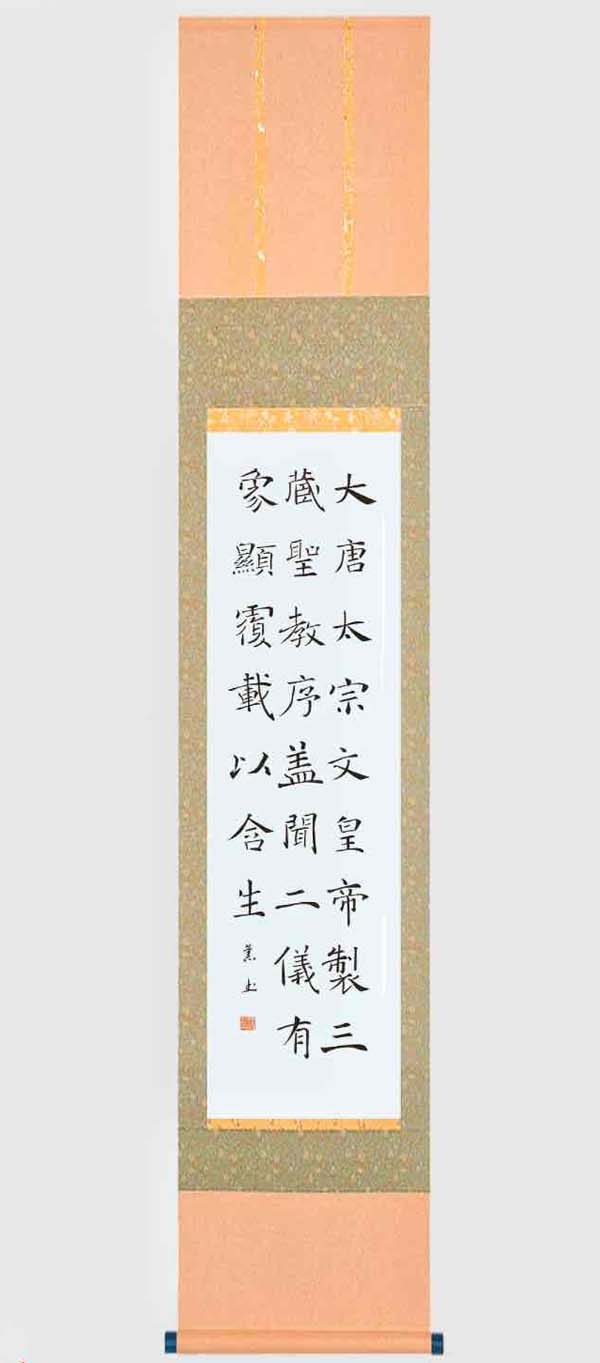 大唐太宗文皇帝製三
蔵聖教序盖聞二儀有
象顯覆載以含生
書